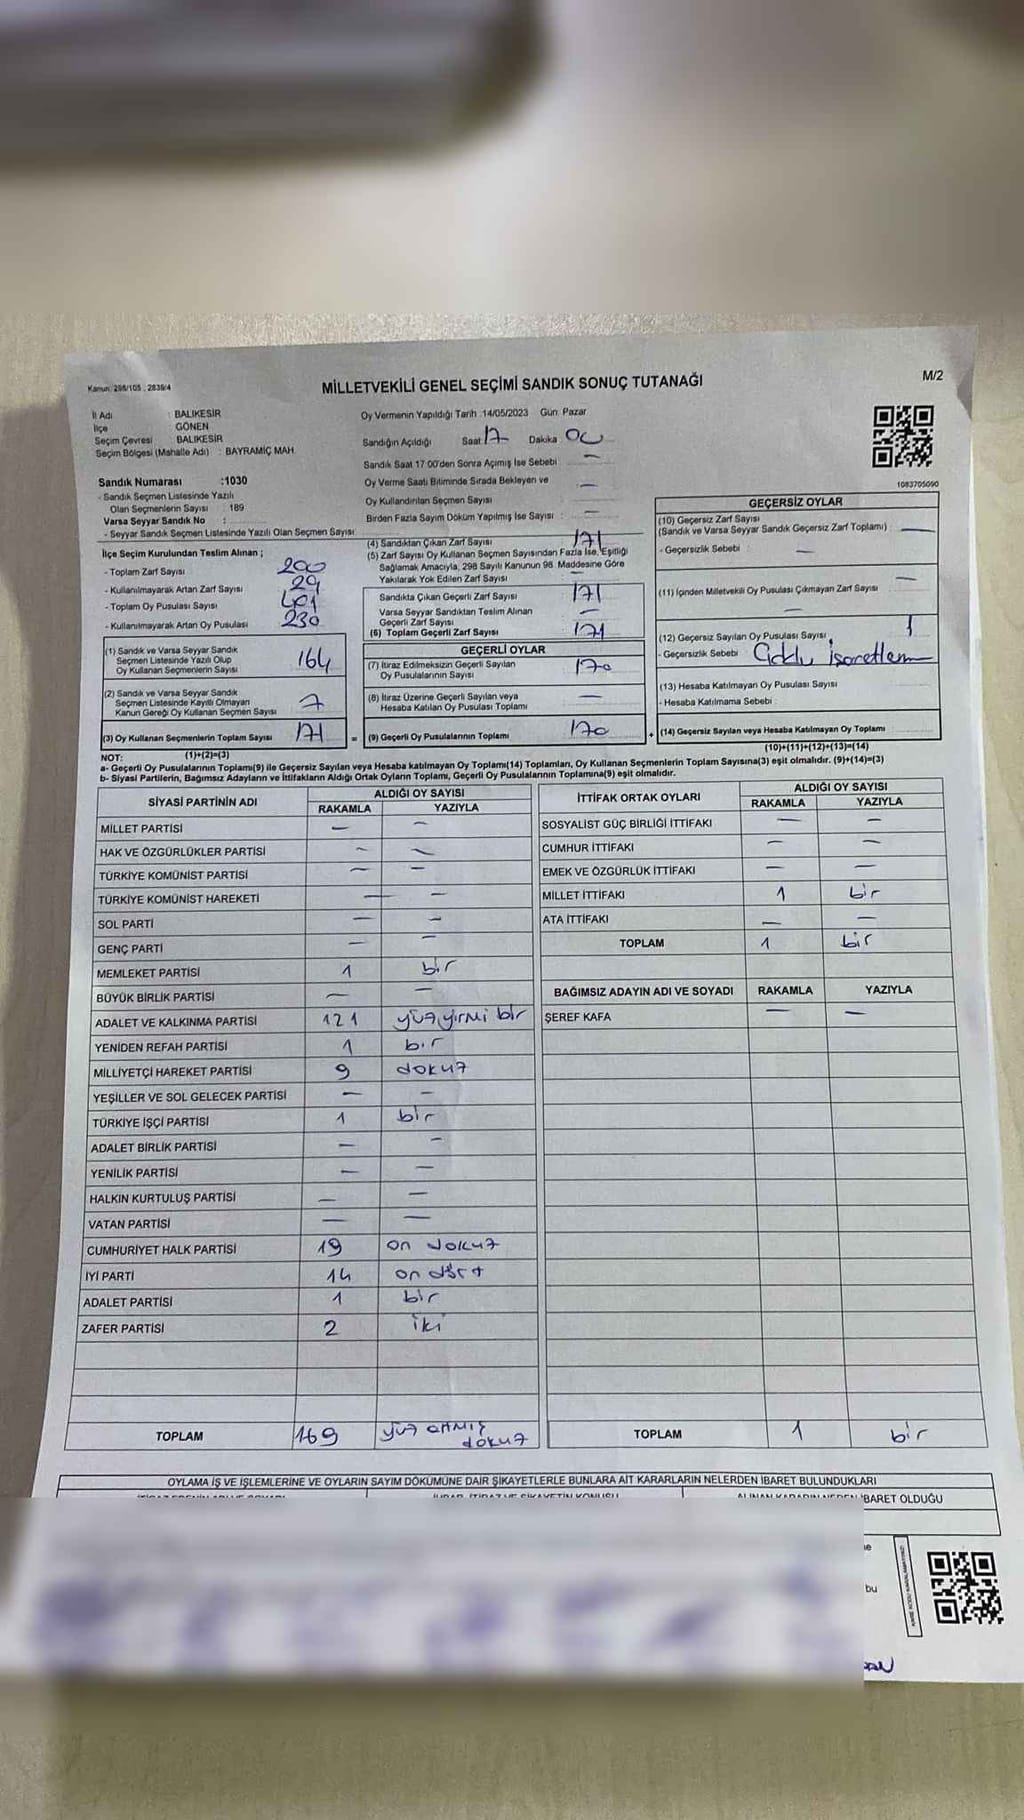 Kanun: 298/105 , 2839/4
MİLLETVEKİLİ GENEL SEÇİMİ SANDIK SONUÇ TUTANAĞI
M/2
İl Adı : BALIKESİR
İlçe GÖNEN
Seçim Çevresi BALIKESİR
Seçim Bölgesi (Mahalle Adı) : BAYRAMİÇ MAH.
Sandık Numarası :1030
- Sandık Seçmen Listesinde Yazılı
Olan Seçmenlerin Sayısı : 189
Varsa Seyyar Sandık No :
- Seyyar Sandık Seçmen Listesinde Yazılı Olan Seçmen Sayısı
Oy Vermenin Yapıldığı Tarih :14/05/2023 Gün: Pazar
Sandığın Açıldığı Saat 17 Dakika 00
Sandık Saat 17:00'den Sonra Açılmış İse Sebebi : —
Oy Verme Saati Bitiminde Sırada Bekleyen ve
Oy Kullandırılan Seçmen Sayısı —
Birden Fazla Sayım Döküm Yapılmış İse Sayısı : —
1083705090
İlçe Seçim Kurulundan Teslim Alınan ;
- Toplam Zarf Sayısı 200
- Kullanılmayarak Artan Zarf Sayısı 29
- Toplam Oy Pusulası Sayısı 401
- Kullanılmayarak Artan Oy Pusulası 230
(1) Sandık ve Varsa Seyyar Sandık
Seçmen Listesinde Yazılı Olup
Oy Kullanan Seçmenlerin Sayısı 164
(2) Sandık ve Varsa Seyyar Sandık
Seçmen Listesinde Kayıtlı Olmayan
Kanun Gereği Oy Kullanan Seçmen Sayısı 7
(3) Oy Kullanan Seçmenlerin Toplam Sayısı 171
(1)+(2)=(3)
(4) Sandıktan Çıkan Zarf Sayısı 171
(5) Zarf Sayısı Oy Kullanan Seçmen Sayısından Fazla İse, Eşitliği
Sağlamak Amacıyla, 298 Sayılı Kanunun 98. Maddesine Göre
Yakılarak Yok Edilen Zarf Sayısı : —
Sandıkta Çıkan Geçerli Zarf Sayısı 171
Varsa Seyyar Sandıktan Teslim Alınan
Geçerli Zarf Sayısı —
(6) Toplam Geçerli Zarf Sayısı 171
GEÇERLİ OYLAR
(7) İtiraz Edilmeksizin Geçerli Sayılan
Oy Pusulalarının Sayısı 170
(8) İtiraz Üzerine Geçerli Sayılan veya
Hesaba Katılan Oy Pusulası Toplamı —
= (9) Geçerli Oy Pusulalarının Toplamı 170
GEÇERSİZ OYLAR
(10) Geçersiz Zarf Sayısı
(Sandık ve Varsa Seyyar Sandık Geçersiz Zarf Toplamı) : —
- Geçersizlik Sebebi : —
(11) İçinden Milletvekili Oy Pusulası Çıkmayan Zarf Sayısı —
—
(12) Geçersiz Sayılan Oy Pusulası Sayısı 1
- Geçersizlik Sebebi
(13) Hesaba Katılmayan Oy Pusulası Sayısı
- Hesaba Katılmama Sebebi :
+ (14) Geçersiz Sayılan veya Hesaba Katılmayan Oy Toplamı
(10)+(11)+(12)+(13)=(14)
NOT:
a- Geçerli Oy Pusulalarının Toplamı(9) ile Geçersiz Sayılan veya Hesaba katılmayan Oy Toplamı(14) Toplamları, Oy Kullanan Seçmenlerin Toplam Sayısına(3) eşit olmalıdır. (9)+(14)=(3)
b- Siyasi Partilerin, Bağımsız Adayların ve İttifakların Aldığı Ortak Oyların Toplamı, Geçerli Oy Pusulalarının Toplamına(9) eşit olmalıdır.
SİYASİ PARTİNİN ADI ALDIĞI OY SAYISI
RAKAMLA YAZIYLA
MİLLET PARTİSİ — —
HAK VE ÖZGÜRLÜKLER PARTİSİ — —
TÜRKİYE KOMÜNİST PARTİSİ — —
TÜRKİYE KOMÜNİST HAREKETİ — —
SOL PARTİ — —
GENÇ PARTİ — —
MEMLEKET PARTİSİ 1 bir
BÜYÜK BİRLİK PARTİSİ — —
ADALET VE KALKINMA PARTİSİ 121 yüz yirmi bir
YENİDEN REFAH PARTİSİ 1 bir
MİLLİYETÇİ HAREKET PARTİSİ 9 dokuz
YEŞİLLER VE SOL GELECEK PARTİSİ — —
TÜRKİYE İŞÇİ PARTİSİ 1 bir
ADALET BİRLİK PARTİSİ — —
YENİLİK PARTİSİ — —
HALKIN KURTULUŞ PARTİSİ — —
VATAN PARTİSİ — —
CUMHURİYET HALK PARTİSİ 19 on dokuz
İYİ PARTİ 14 on dört
ADALET PARTİSİ 1 bir
ZAFER PARTİSİ 2 iki
TOPLAM 169 yüz altmış dokuz
İTTİFAK ORTAK OYLARI ALDIĞI OY SAYISI
RAKAMLA YAZIYLA
SOSYALİST GÜÇ BİRLİĞİ İTTİFAKI — —
CUMHUR İTTİFAKI — —
EMEK VE ÖZGÜRLÜK İTTİFAKI — —
MİLLET İTTİFAKI 1 bir
ATA İTTİFAKI — —
TOPLAM 1 bir
BAĞIMSIZ ADAYIN ADI VE SOYADI RAKAMLA YAZIYLA
ŞEREF KAFA — —
TOPLAM 1 bir
OYLAMA İŞ VE İŞLEMLERİNE VE OYLARIN SAYIM DÖKÜMÜNE DAİR ŞİKAYETLERLE BUNLARA AİT KARARLARIN NELERDEN İBARET BULUNDUKLARI
İBARET OLDUĞU
bu